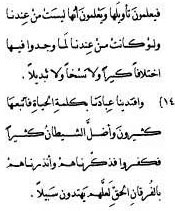 فيعلمون تأويلها ويعلمون أنها ليست من عندنا
ولو كانت من عندنا لما وجدوا فيها
اختلافاً كبيراً ولا نسخاً ولا تبديلاً .
(١٤ وافتدينا عبادنا بكلمة الحياة فاتبعها
كثيرون وأضل الشيطان كثيراً
فكفروا فذكرناهم وأنذرناهم
بالفرقان الحق لعلهم يهتدون سبيلاً .